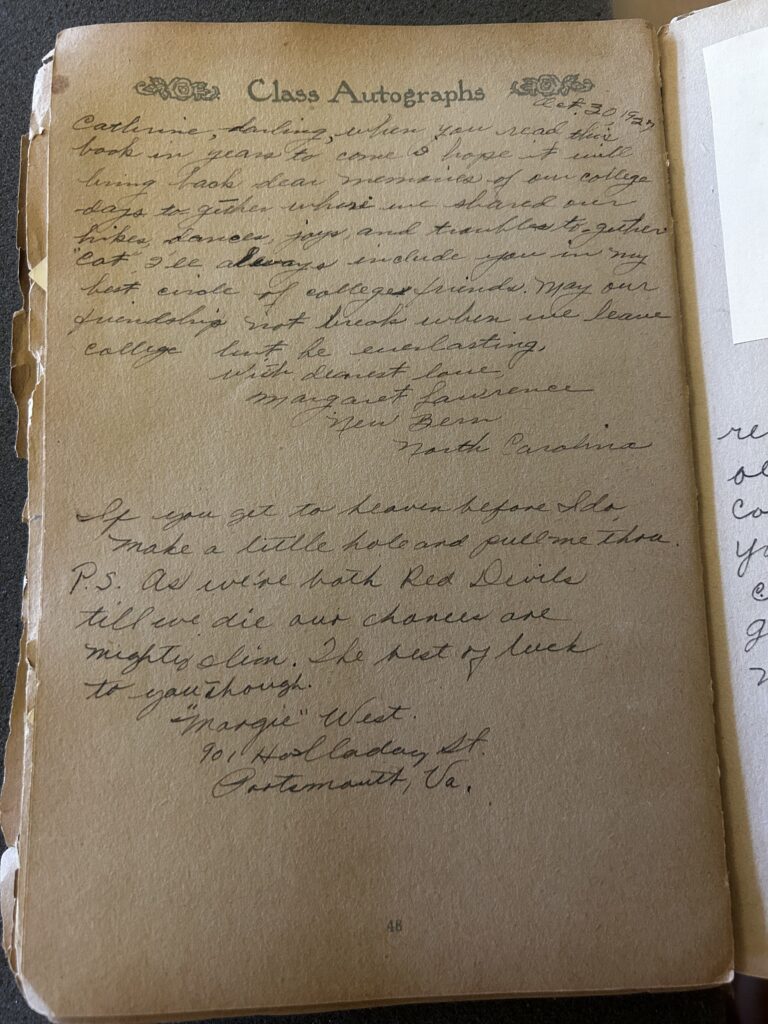 Class Autographs
Oct. 20, 1927
Cathrine, darling, when you read this
book in years to come I hope it will
bring back dear memories of our college
days to gether when we shared our
hikes, dances, joys, and troubles to-gether
"Cat" I'll always include you in my
best circle of college friends. May our
friendship not break when we leave
college but be everlasting,
With dearest love,
Margaret Lawrence
New Bern
North Carolina
If you get to heaven before I do
Make a little hole and pull me thru.
P.S. As we're both Red Devils
till we die our chances are
mighty slim. The best of luck
to you though.
"Margie" West.
901 Holladay St.
Portsmouth, Va.
48
re
co